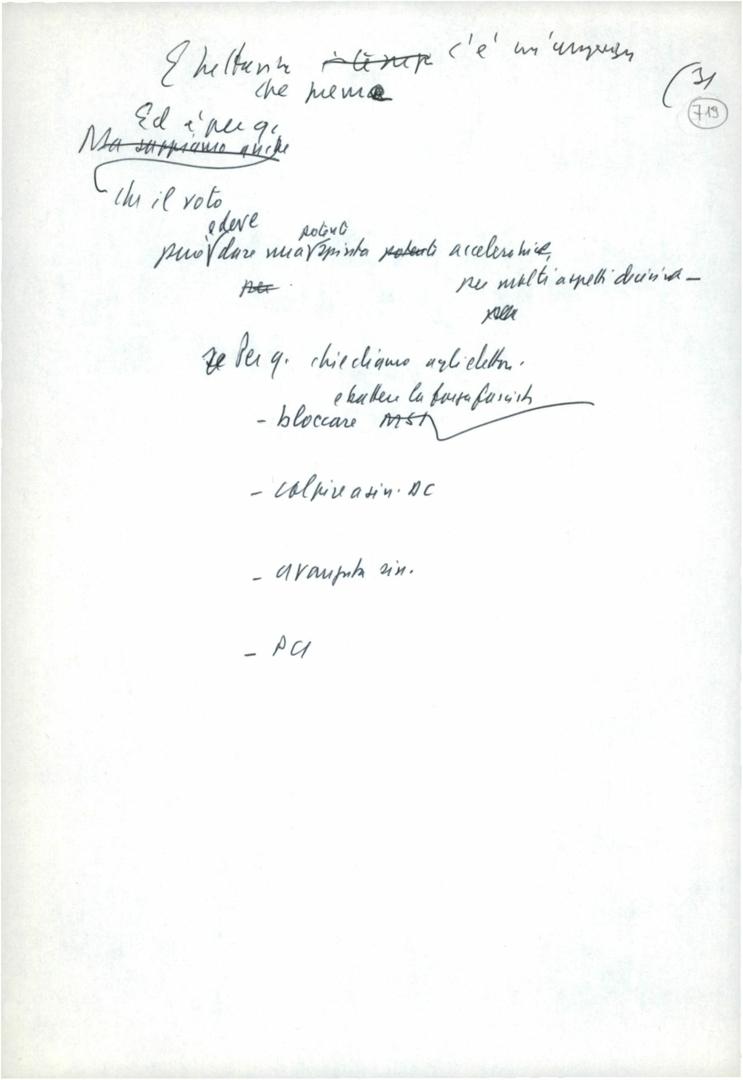 E c'è un'urgenza
che preme
(31
719
Ed è per q.
Ma sappiamo anche
che il voto
e deve
potente
può dare una spinta potente acceleratrice,
per molti aspetti decisiva –
per
Per q. chiediamo agli elettori.
e battere la forza fascista
- bloccare MSI
- colpire a sin. DC
- avanzata sin.
- PCI